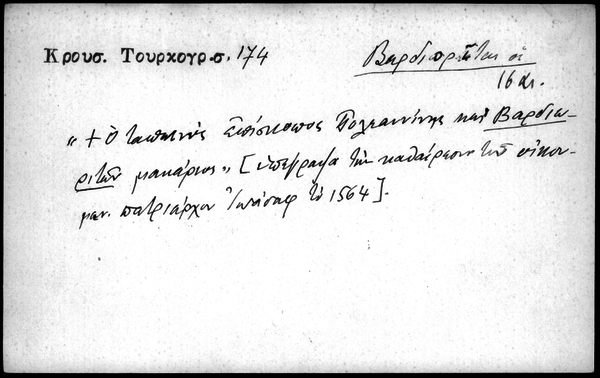 Κρουσ. Τουρκογρ.σ. 174
Βαρδιωρῖται οἱ
16 αι.
"+ Ὁ ταπεινὸς ἐπίσκοπος Πολεανίνης καὶ Βαρδιω-
ριτῶν μακάριος" [ὑπέγραψα τὴν καθαίρεσιν τοῦ οἰκου-
μεν. πατριάρχου Ἰωάσαφ τῷ 1564].